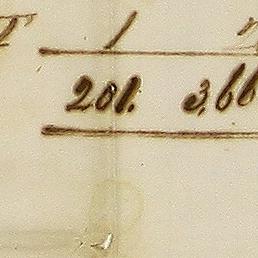 1
201. 3,66